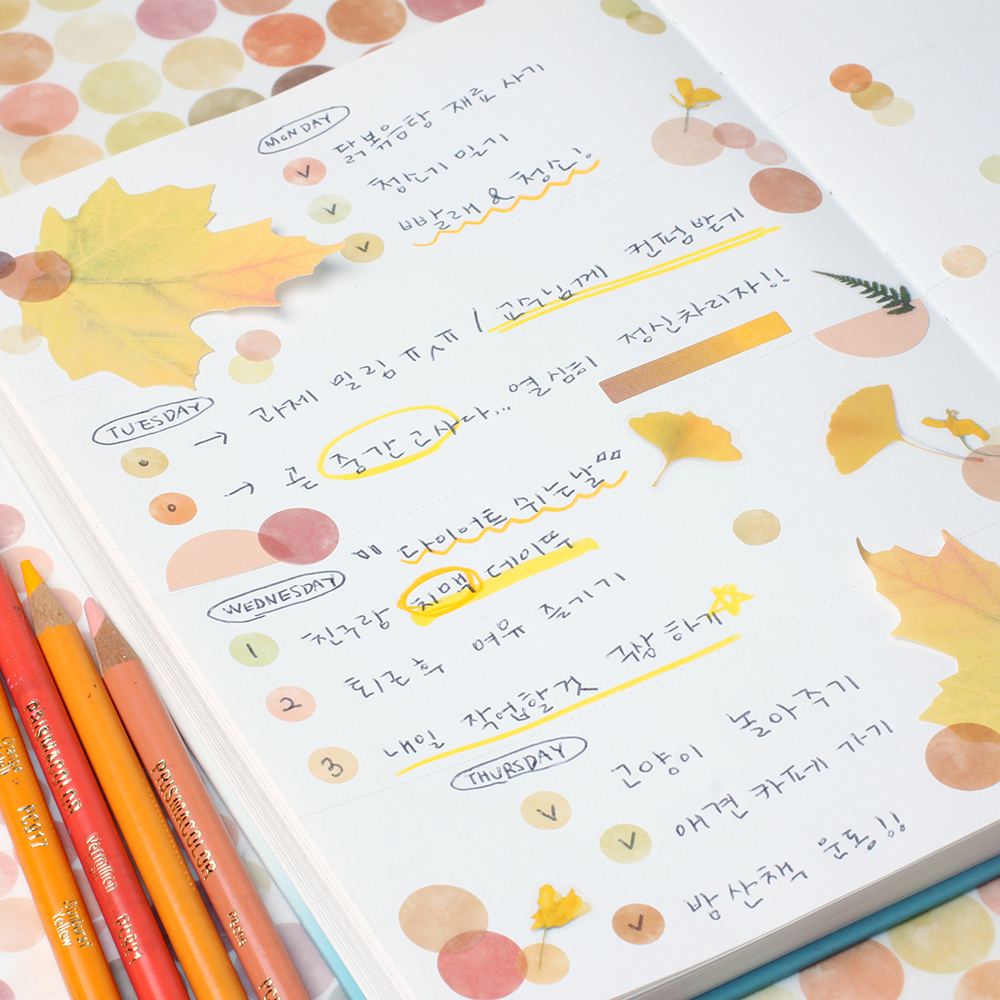 MONDAY
V 닭볶음탕 재료 사기
V 청소기 밀기
V 빨래 & 청소!
TUESDAY
→ 과제 밀림 ㅠㅅㅠ / 교수님께 컨펌받기
→ 곧 중간고사다... 열심히 정신차리자!!
WEDNESDAY
다이어트 쉬는날
1 친구랑 치맥 데이뚜
2 퇴근 후 여유 즐기기
3 내일 작업할것 구상하기
THURSDAY
V 고양이 놀아주기
V 애견카페 가기
V 밤산책 운동!!
PRISMACOLOR
PRISMACOLOR
Vermilion
PC921
PC917
Sunburst
Yellow